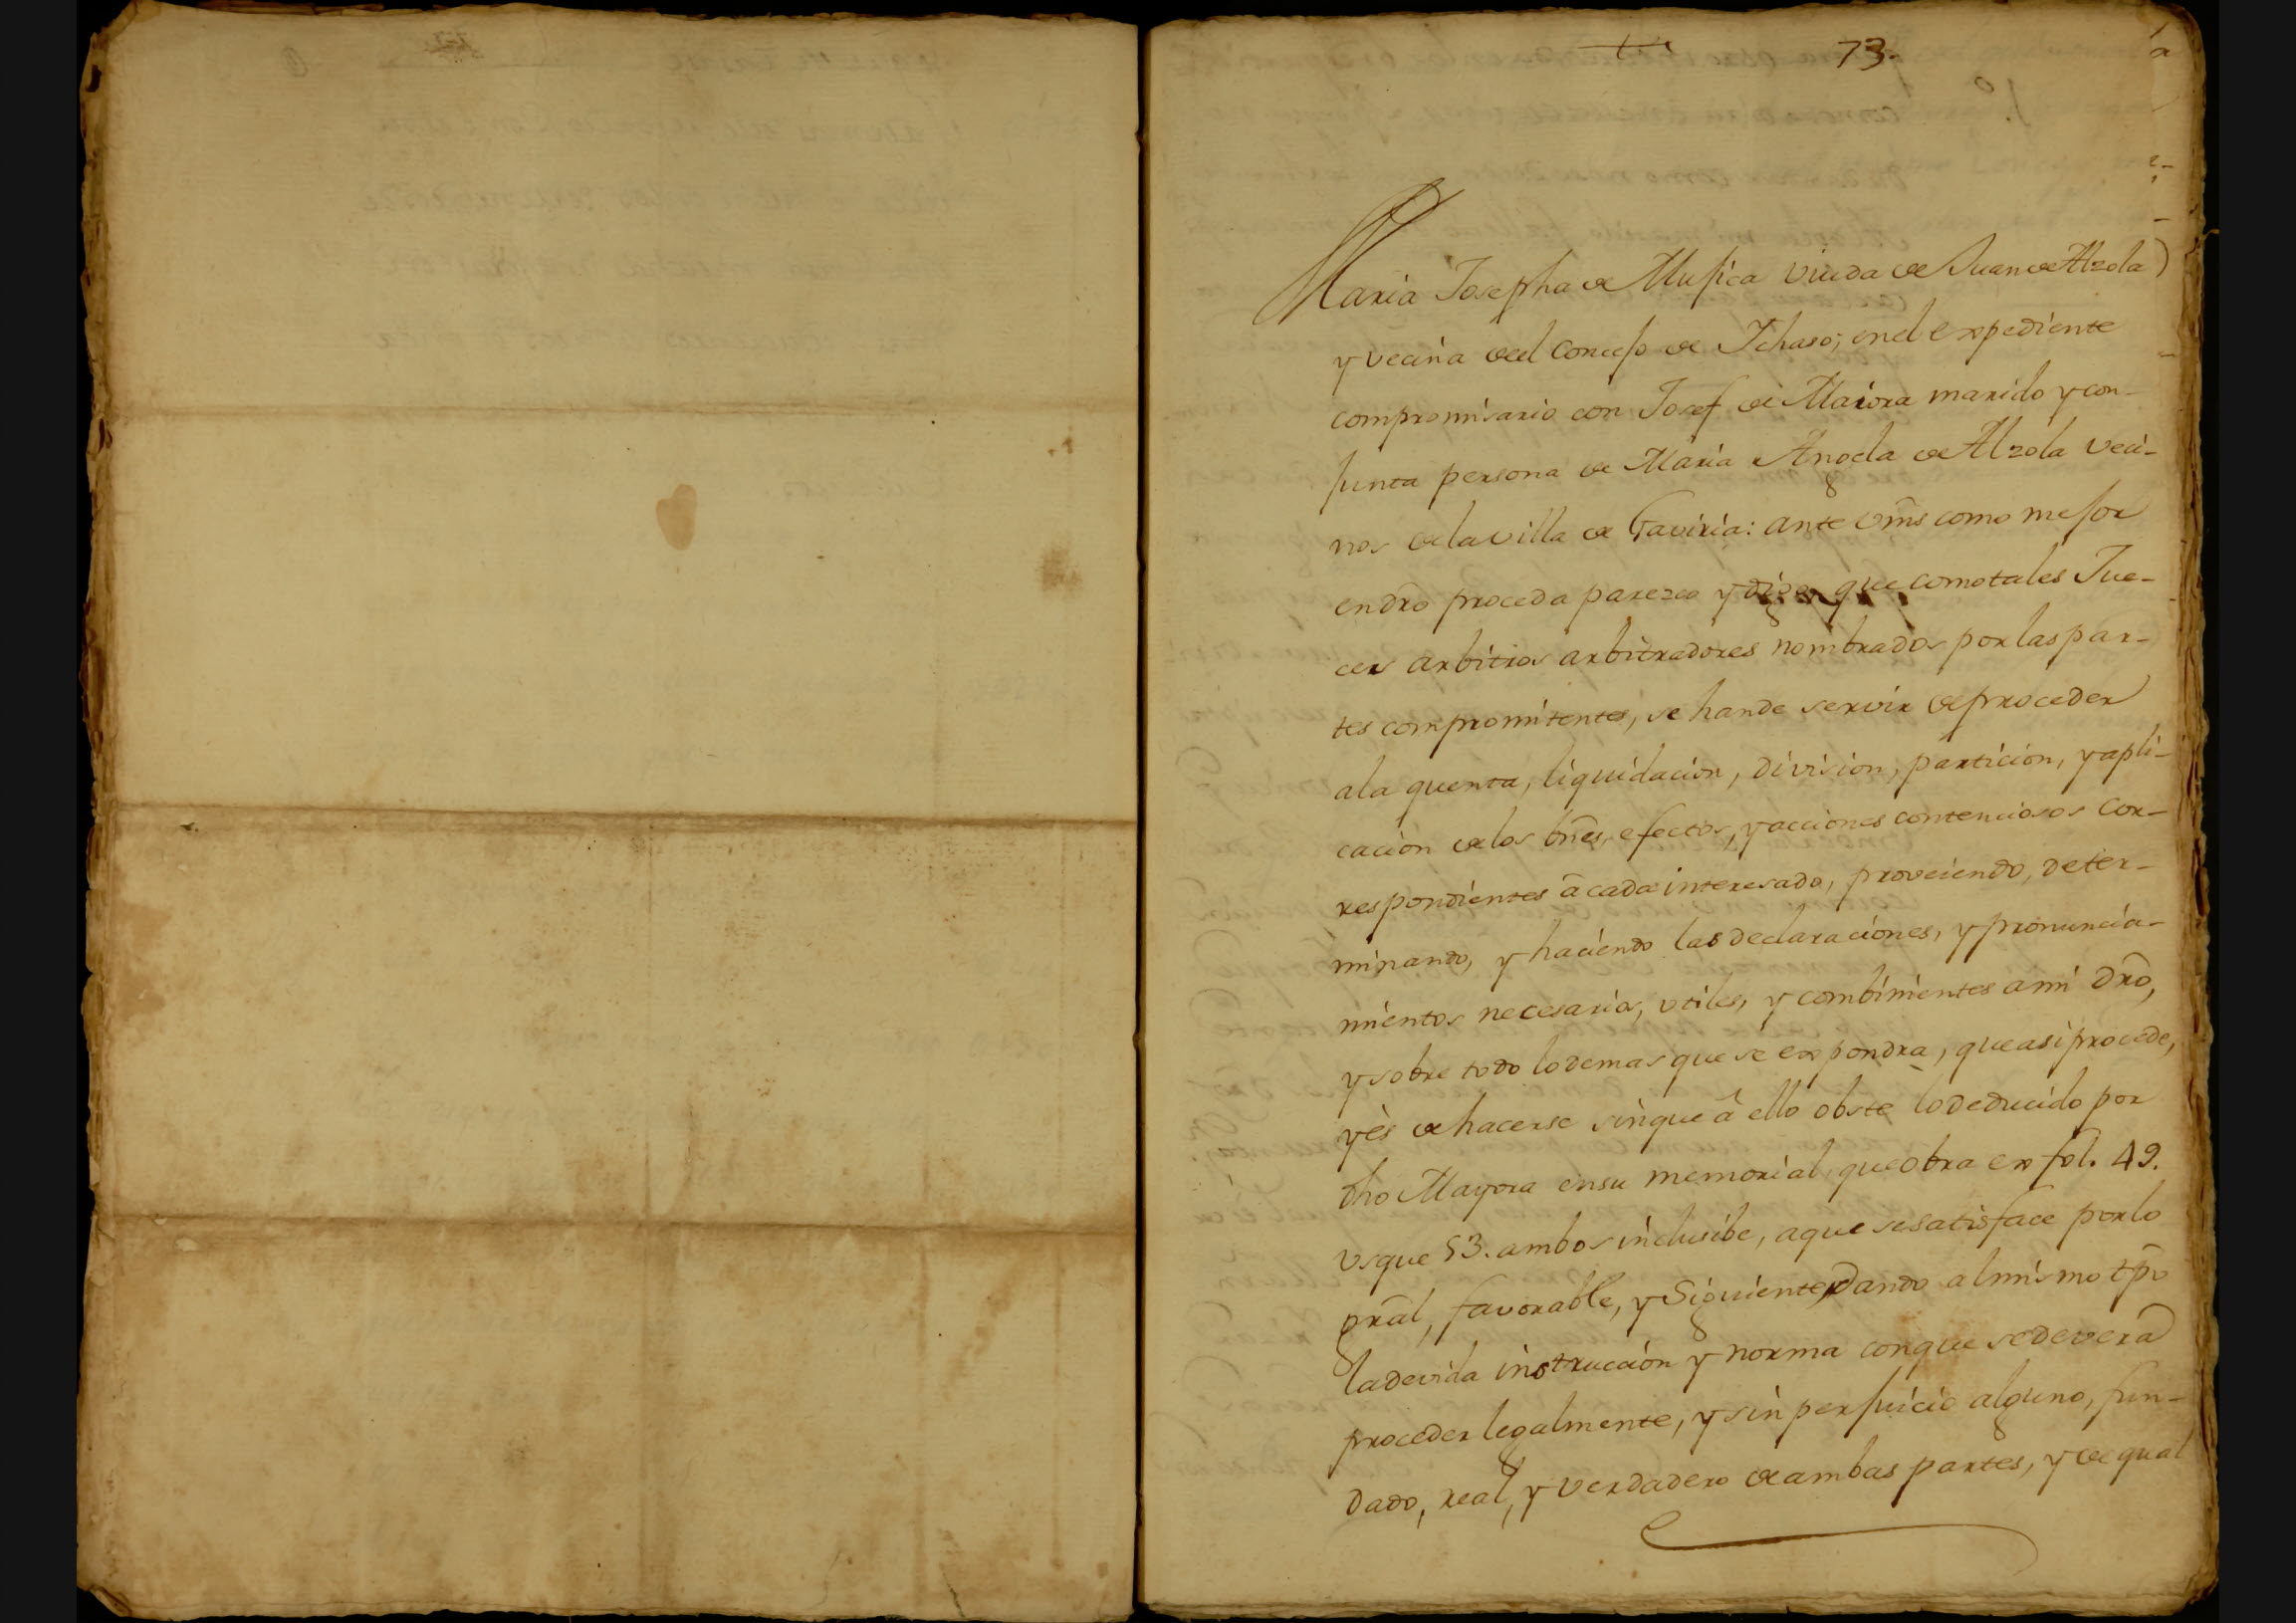 73.
Maria Josepha de Mugica viuda de Juan de Alzola
y vecina del Concejo de Ichaso; en el expediente
compromisario con Josef de Maiora marido y con-
junta persona de Maria Angela de Alzola veci-
nos de la villa de Gaviria: ante vm̃s como mejor
en dr̃o proceda parezco y digo que como tales Jue-
ces arbitros arbitradores nombrados por las par-
tes compromitentes, se han de servir de proceder
a la quenta, liquidacion, division, particion, y apli-
cacion de los bñes, efectos, y acciones contenciosos cor-
respondientes â cada interesado, proveiendo, deter-
minando, y haciendo las declaraciones, y pronuncia-
mientos necesarios, utiles, y combinientes a mi dr̃o,
y sobre todo lo demas que se expondra, que asi procede,
y ès de hacerse sin que â ello obste lo deducido por
dho Mayora en su memorial que obra ex fol. 49.
usque 53. ambos inclusibe, a que se satisface por lo
gr̃al, favorable, y siguiente, dando al mismo tp̃o
la devida instruccion y norma con que se deverà
proceder legalmente, y sin perjuicio alguno, fun-
dado, real, y verdadero de ambas partes, y de qual